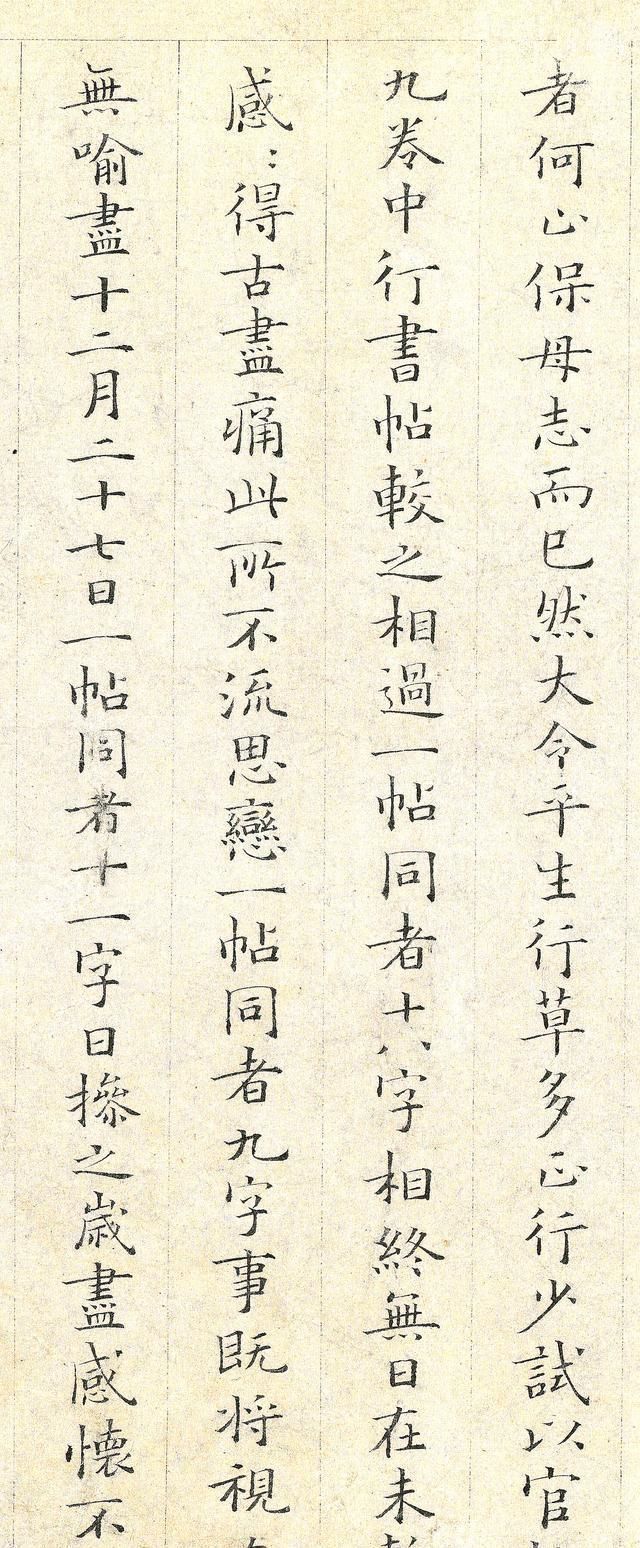 者何止保母志而已然大令平生行草多正行少試以官
九卷中行書帖較之相過一帖同者十八字相終無日在未
感〻得古盡痛此所不流思戀一帖同者九字事既将視
無喻盡十二月二十七日一帖同者十一字日摻之歲盡感懷不